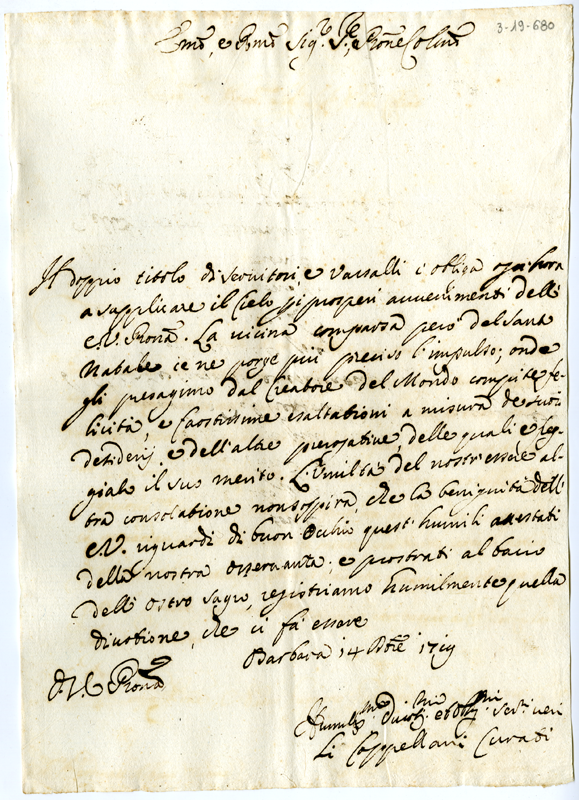 3-19-680
Emo, e Rmo Sigr, Pre, Prone Colmo
Il doppio titolo di servitori, e Vassalli ci obliga ogn'hora
a supplicare il Cielo di prosperi avvenimenti dell'
E.V. Prona. La vicina comparsa però del Sant
Natale ce ne porge più preciso l'impulso; onde
gli presagimo dal Creatore del Mondo compite fe-
licità, e faostissime esaltationi a misura de suoi
desiderij, e dell'alte prerogative, delle quali, e Seg-
giale il suo merito. L'umiltà del nostr'essere al-
tra consolatione non sospira, che la benignità dell'
E.V. riguardi di buon occhio questi humili attestati
della nostra osservanza; e prostrati al bacio
dell'Ostro Sagro, registriamo humilmente quella
divotione, che ci fà essere
Barbara 14 Xbre 1719
D. V. E. Prona
Humilmi Divotmi et Obligmi Servi veri
Li Cappellani Curati